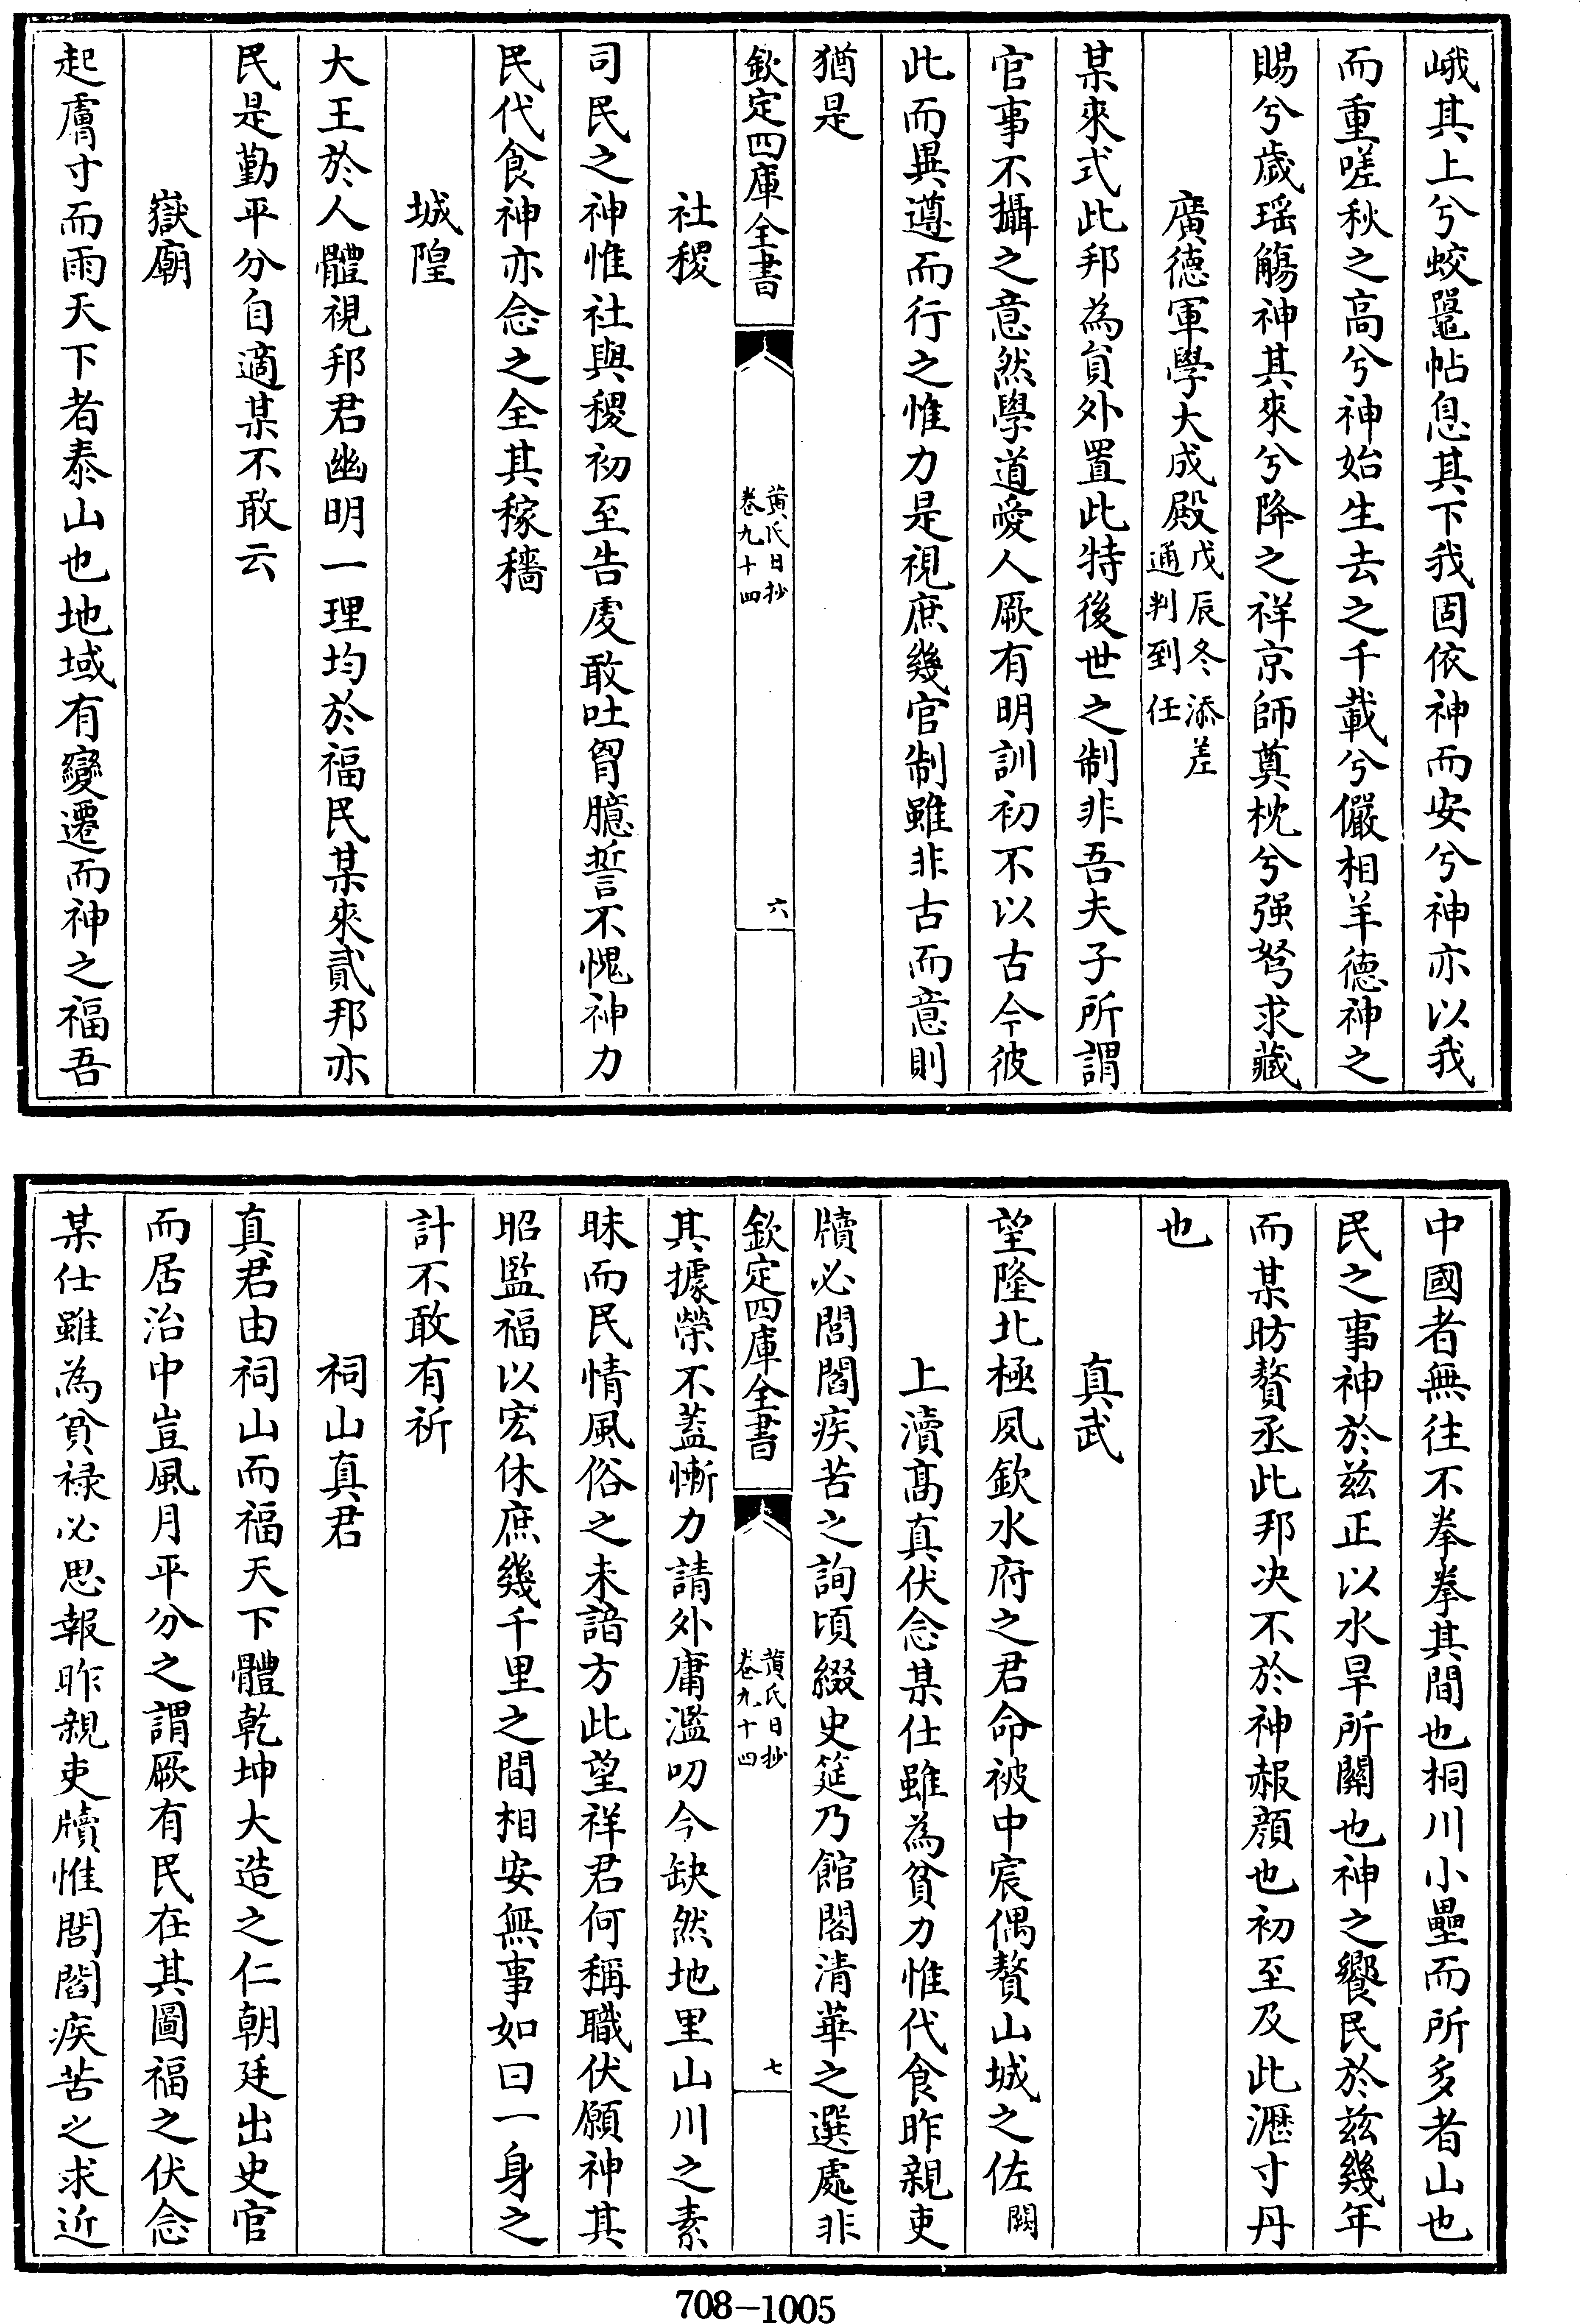 峨其上兮蛟鼉帖息其下我固依神而安兮神亦以我
而重嗟秋之高兮神始生去之千載兮儼相羊德神之
賜兮歲瑶觴神其來兮降之祥京師奠枕兮强弩求藏
廣德軍學大成殿戊辰冬添差通判到任
某來式此邦為貟外置此特後世之制非吾夫子所謂
官事不攝之意然學道愛人厥有明訓初不以古今彼
此而異遵而行之惟力是視庶幾官制雖非古而意則
猶是
欽定四庫全書
黄氏日抄
卷九十四
六
社稷
司民之神惟社與稷初至告虔敢吐胷臆誓不愧神力
民代食神亦念之全其稼穡
城隍
大王於人體視邦君幽明一理均於福民某來貳邦亦
民是勤平分自適某不敢云
嶽廟
起膚寸而雨天下者泰山也地域有變遷而神之福吾
中國者無往不拳拳其間也桐川小壘而所多者山也
民之事神於兹正以水旱所關也神之饗民於兹幾年
而某昉贅丞此邦决不於神赧顔也初至及此瀝寸丹
也
真武
望隆北極夙欽水府之君命被中宸偶贅山城之佐闕
上瀆髙真伏念某仕雖為貧力惟代食昨親吏
牘必閭閻疾苦之詢頃綴史筵乃館閣清華之選處非
欽定四庫全書
黄氏日抄
卷九十四
七
其據榮不蓋慚力請外庸濫叨今缺然地里山川之素
昧而民情風俗之未諳方此望祥君何稱職伏願神其
昭監福以宏休庶幾千里之間相安無事如曰一身之
計不敢有祈
祠山真君
真君由祠山而福天下體乾坤大造之仁朝廷出史官
而居治中豈風月平分之謂厥有民在其圖福之伏念
某仕雖為貧禄必思報昨親吏牘惟閭閻疾苦之求近
708-1005